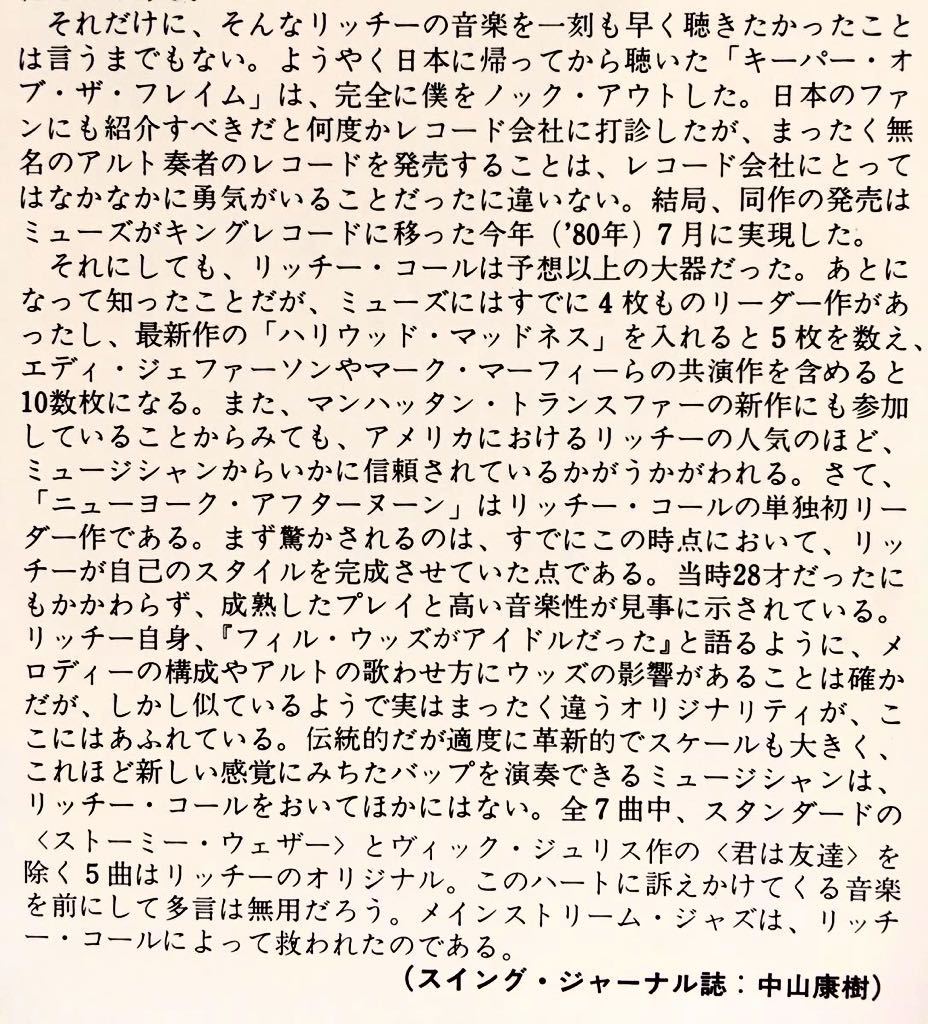 それだけに、そんなリッチーの音楽を一刻も早く聴きたかったこと
は言うまでもない。ようやく日本に帰ってから聴いた「キーパー・オ
ブ・ザ・フレイム」は、完全に僕をノック・アウトした。日本のファ
ンにも紹介すべきだと何度かレコード会社に打診したが、まったく無
名のアルト奏者のレコードを発売することは、レコード会社にとって
はなかなかに勇気がいることだったに違いない。結局、同作の発売は
ミューズがキングレコードに移った今年（'80年）7月に実現した。
それにしても、リッチー・コールは予想以上の大器だった。あとに
なって知ったことだが、ミューズにはすでに4枚ものリーダー作があ
ったし、最新作の「ハリウッド・マッドネス」を入れると5枚を数え、
エディ・ジェファーソンやマーク・マーフィーらの共演作を含めると
10数枚になる。また、マンハッタン・トランスファーの新作にも参加
していることからみても、アメリカにおけるリッチーの人気のほど、
ミュージシャンからいかに信頼されているかがうかがわれる。さて、
「ニューヨーク・アフターヌーン」はリッチー・コールの単独初リー
ダー作である。まず驚かされるのは、すでにこの時点において、リッ
チーが自己のスタイルを完成させていた点である。当時28才だったに
もかかわらず、成熟したプレイと高い音楽性が見事に示されている。
リッチー自身、『フィル・ウッズがアイドルだった』と語るように、メ
ロディーの構成やアルトの歌わせ方にウッズの影響があることは確か
だが、しかし似ているようで実はまったく違うオリジナリティが、こ
こにはあふれている。伝統的だが適度に革新的でスケールも大きく、
これほど新しい感覚にみちたバップを演奏できるミュージシャンは、
リッチー・コールをおいてほかにはない。全7曲中、スタンダードの
〈ストーミー・ウェザー〉とヴィック・ジュリス作の〈君は友達〉を
除く5曲はリッチーのオリジナル。このハートに訴えかけてくる音楽
を前にして多言は無用だろう。メインストリーム・ジャズは、リッチ
ー・コールによって救われたのである。
（スイング・ジャーナル誌：中山康樹）